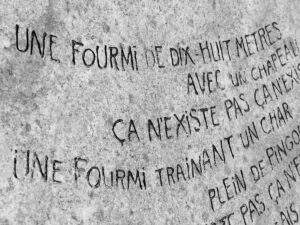 UNE FOURMI DE DIX-HUIT METRES
AVEC UN CHAPEAU
ÇA N'EXISTE PAS ÇA N'EXIS
UNE FOURMI TRAINANT UN CHAR
PLEIN DE PINGO
TE PAS ÇA N'E
AIS